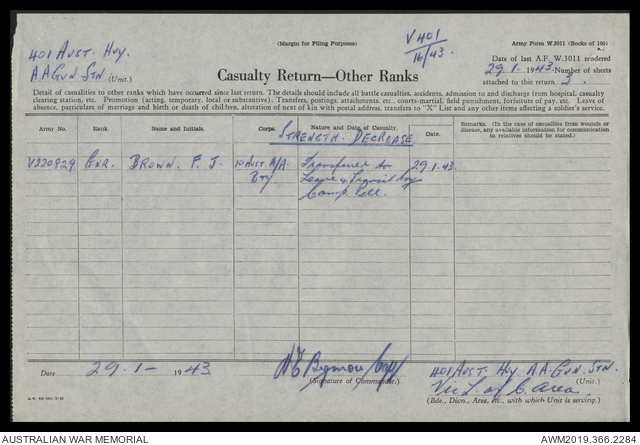 (Margin for Filing Purposes)
V401
16/43.
Army Form W.3011 (Books of 100)
401 AUST. HVY.
A.A GUN STN. (Unit.)
Date of last A.F. W.3011 rendered
29.1. 1943. Number of sheets
attached to this return 3.
Casualty Return—Other Ranks
Detail of casualties to other ranks which have occurred since last return. The details should include all battle casualties, accidents, admission to and discharge from hospital, casualty
clearing station, etc. Promotion (acting, temporary, local or substantive). Transfers, postings, attachments, etc., courts-martial, field punishment, forfeiture of pay, etc. Leave of
absence, particulars of marriage and birth or death of children, alteration of next of kin with postal address, transfers to "X" List and any other items affecting a soldier's service.
Army No. Rank. Name and Initials. Corps. Nature and Date of Casualty. Date. Remarks. (In the case of casualties from wounds or
disease, any available information for communication
to relatives should be stated.)
STRENGTH DECREASE
V220829 GNR. BROWN. F. J. 10 AUST. M/A- Transferred to 29.1.43.
BTY Leave & Transit
Camp
Date 29-1- 1943
(Signature of Commander.)
401 AUST. HY. A.A. GUN. STN.
(Unit.)
Vic L. of C. Area.
(Bde., Divn., Area, etc., with which Unit is serving.)
AUSTRALIAN WAR MEMORIAL
AWM2019.366.2284